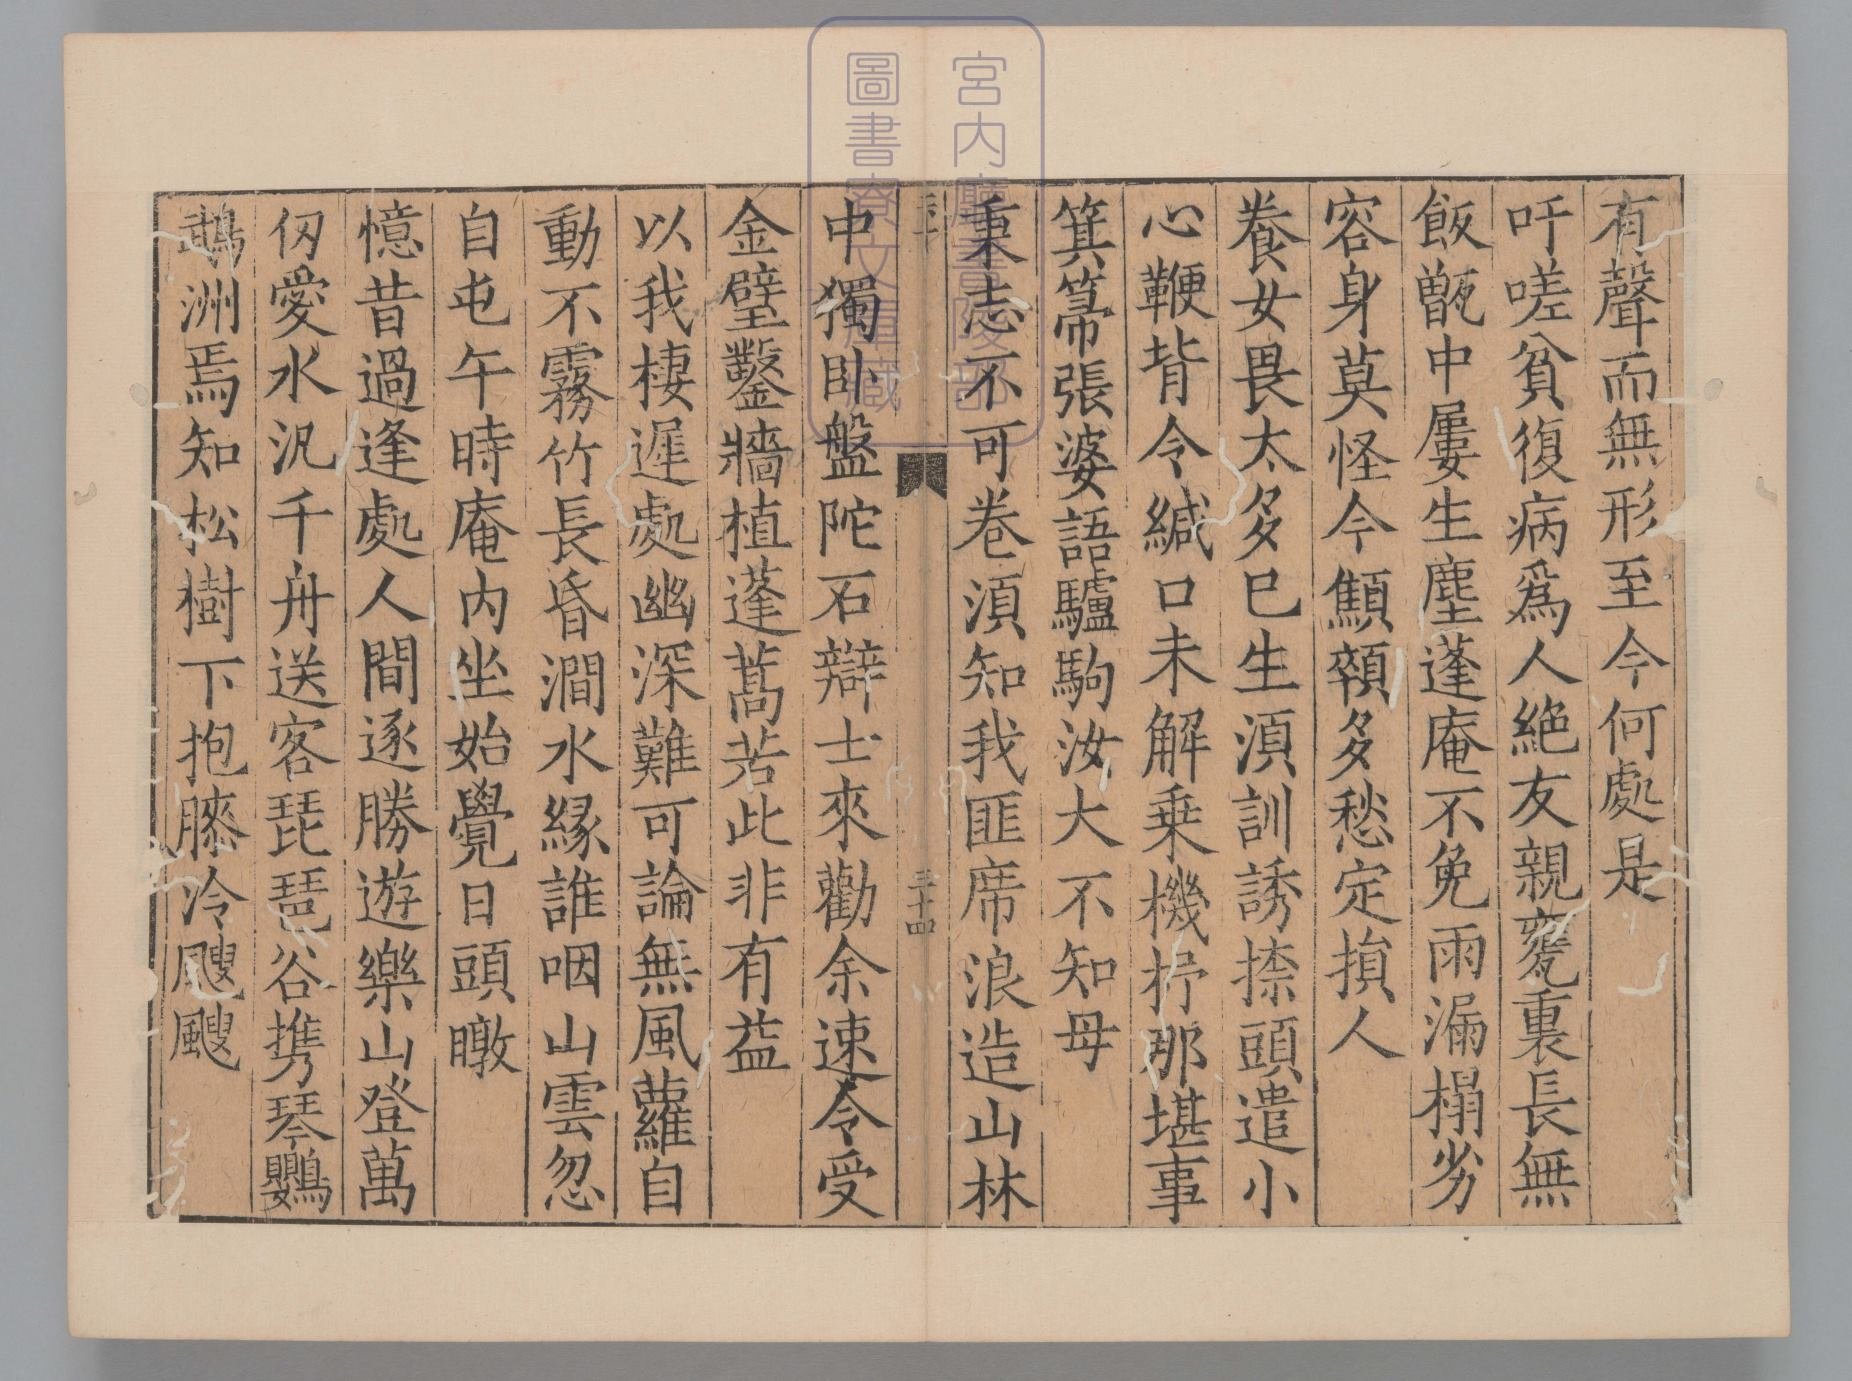 有聲而無形至今何處是
吁嗟貧復病爲人絶友親甕裏長無
飯甑中屢生塵蓬庵不免雨漏榻劣
容身莫怪今顦顇多愁定損人
養女畏太多已生須訓誘捺頭遣小
心鞭背令緘口未解乗機杼那堪事
箕箒張婆語驢駒汝大不知母
秉志不可卷須知我匪席浪造山林
中獨卧盤陀石辯士來勸余速令受
金璧鑿牆植蓬蒿若此非有益
以我棲遲處幽深難可論無風蘿自
動不霧竹長昏澗水縁誰咽山雲忽
自屯午時庵内坐始覺日頭暾
憶昔過逢處人間逐勝遊樂山登萬
仞愛水汎千舟送客琵琶谷携琴鸚
鵡洲焉知松樹下抱膝冷颼颼
三十四
宮内廳書陵部
圖書寮文庫藏